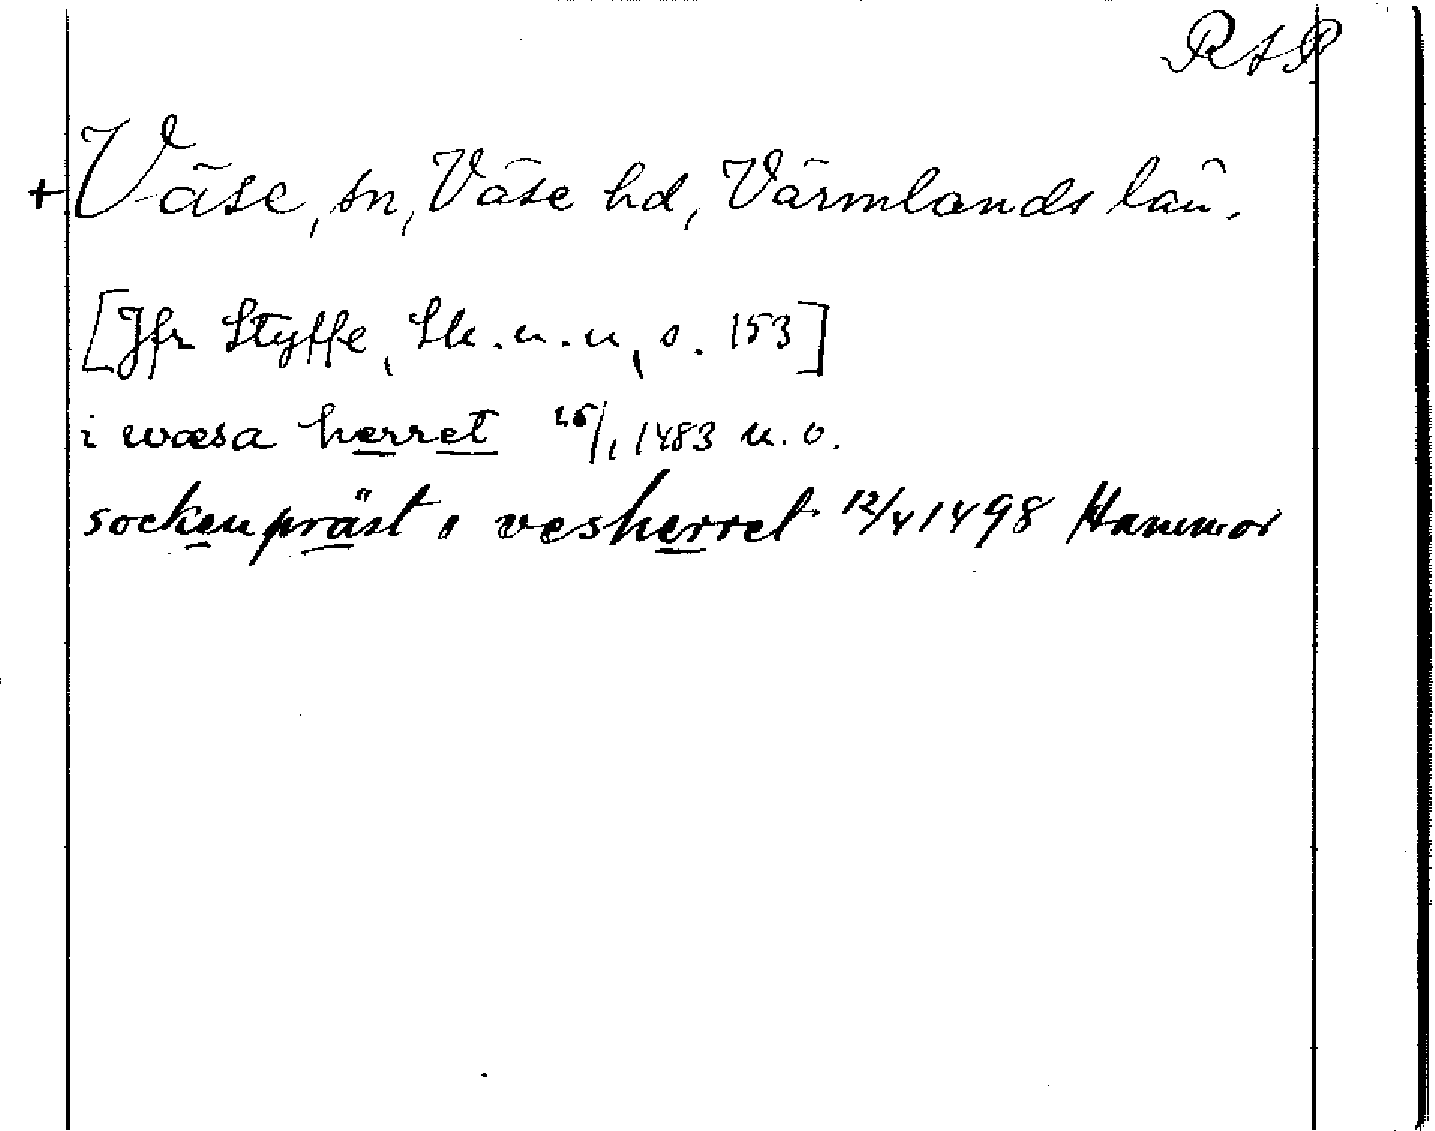 RAP
+ Väse, sn, Väse hd, Värmlands län.
[Jfr Styffe, Sk. u. u, s. 153]
i wæsa herret 25/1 1483 u. o.
sockenpräst i vesherret 12/4 1498 Hammor